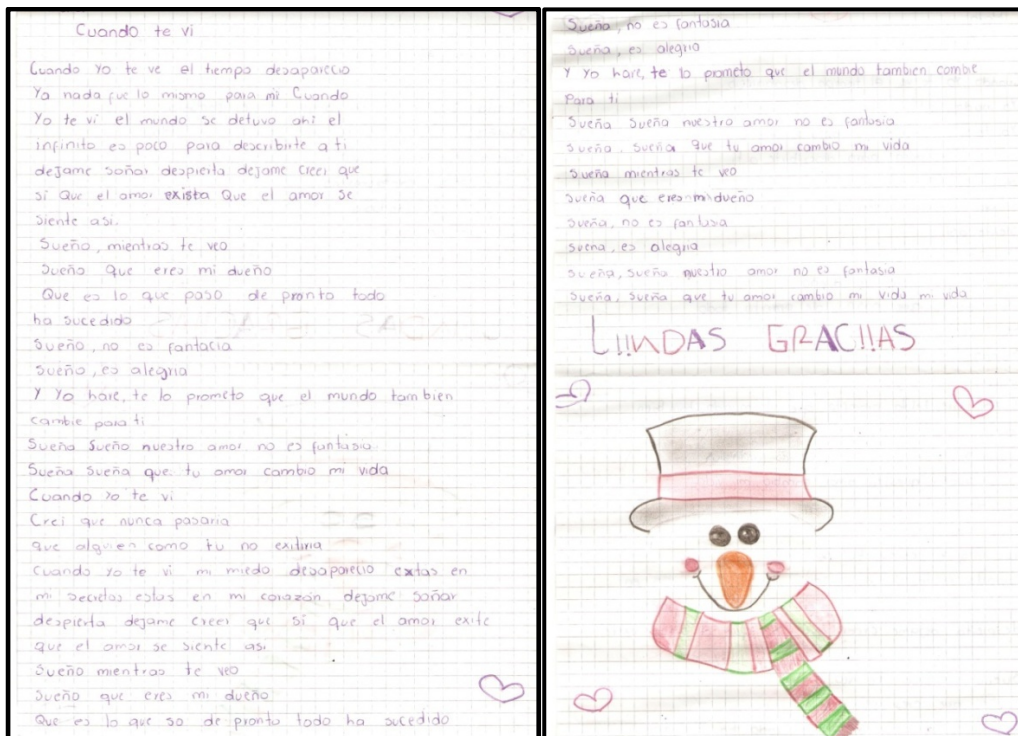 Cuando te vi
Cuando Yo te ve el tiempo desaparecio
Ya nada fue lo mismo para mi Cuando
Yo te vi el mundo se detuvo ahi el
infinito es poco para describirte a ti
dejame soñar despierta dejame creer que
si Que el amor exista Que el amor se
siente asi.
Sueño, mientras te veo
Sueño que eres mi dueño
Que es lo que paso de pronto todo
ha sucedido
Sueño, no es fantacia
Sueño, es alegria
Y Yo hare, te lo prometo que el mundo tambien
cambie para ti
Sueña Sueño nuestro amor no es fantasia
Sueña Sueña que tu amor cambio mi vida
Cuando Yo te vi
Crei que nunca pasaria
que alguien como tu no exitiria
Cuando Yo te vi mi miedo desaparecio extas en
mi secretos estas en mi corazón dejame soñar
despierta dejame creer que si que el amor exite
que el amor se siente asi
Sueño mientras te veo
Sueño que eres mi dueño
Que es lo que so de pronto todo ha sucedido
Sueño, no es fantasia
Sueña, es alegria
Y Yo hare, te lo prometo que el mundo tambien cambie
Para ti
Sueña Sueña nuestro amor no es fantasia
Sueña, Sueña que tu amor cambio mi vida
Sueña mientras te veo
Sueña que eres mi dueño
Sueña, no es fantasia
Sueña, es alegria
Sueña, Sueño nuestro amor no es fantasia
Sueña, Sueña que tu amor cambio mi vida mi vida
LIINDAS GRACIIAS